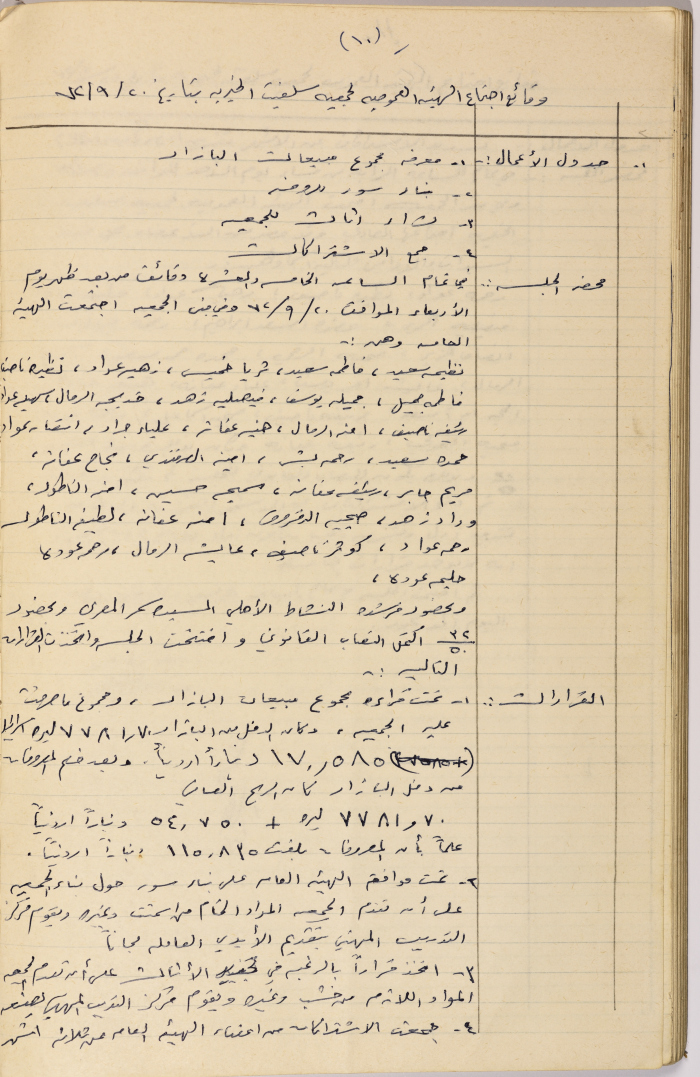 (١٠)
وقائع اجتماع الهيئة العمومية لجمعية سلفيت الخيرية بتاريخ ٢٠/٩/٧٢
١- جدول الأعمال :- ١- معرفة مجموع مبيعات البازار
٢- بناء سور للروضة
٣- شراء اثاث للجمعية
٤- جمع الاشتراكات
محضر الجلسة :- في تمام الساعة الخامسة والعشرة دقائق من بعد ظهر يوم
الأربعاء الموافق ٢٠/٩/٧٢ وفي مبنى الجمعية اجتمعت الهيئة
العامة وهن :-
نظيمة سعيد ، فاطمة سعيد ، ثريا خميس ، زهير عواد ، نظيرة ناصيف
فاطمة جميل ، جميلة يوسف ، فيصلية زهد ، خديجة الرمال ، سهيلة عواد
رئيفة ناصيف ، امنة الرمال ، خيرية عفانة ، علياء جراد ، انتصار عواد
حمدة سعيد ، رحمة بشر ، امينة الصرفندي ، نجاح عفانة ،
مريم جابر ، ريفة عفانة ، سميحة حسين ، امنة الناطور ،
وداد زهد ، صبحية ، امنة عفانة ، لطيفة الناطور
رحمة عواد ، كوثر ناصيف ، عايشة الرمال ، رحمة عودة
حليمة عودة ،
وبحضور مرشدة النشاط الأهلي السيدة سمر المصري وبحضور
٣٢/٥٠ اكتمل النصاب القانوني و افتتحت الجلسة واتخذت القرارات
التالية :-
القرارات :- ١- تمت قراءة مجموع مبيعات البازار ، ومجموع ما صرفت
عليه الجمعية ، وكان الدخل من البازار ٧٧٨١,٧٠ ليرة اسرائيلية
١٧٠,٥٨٥ ديناراً اردنياً . وبعد خصم المصروفات
من دخل البازار كان الربح الصافي
٧٧٨١,٧٠ ليرة + ٥٤,٧٥٠ ديناراً اردنياً
علماً بأن المصروفات بلغت ١١٥,٨٣٥ ديناراً اردنياً .
٢- تمت موافقة الهيئة العامة على بناء سور حول بناء الجمعية
على أن تقدم الجمعية المواد الخام من اسمنت وغيره ويقوم مركز
التدريب المهني بتقديم الأيدي العاملة مجاناً
٣- اتخذ قراراً بالرغبة في تجهيز الأثاث على أن تقدم الجمعية
المواد اللازمة من خشب وغيره ويقوم مركز التدريب المهني بصنعه
٤- جمعت الاشتراكات من اعضاء الهيئة العامة عن ثلاثة اشهر